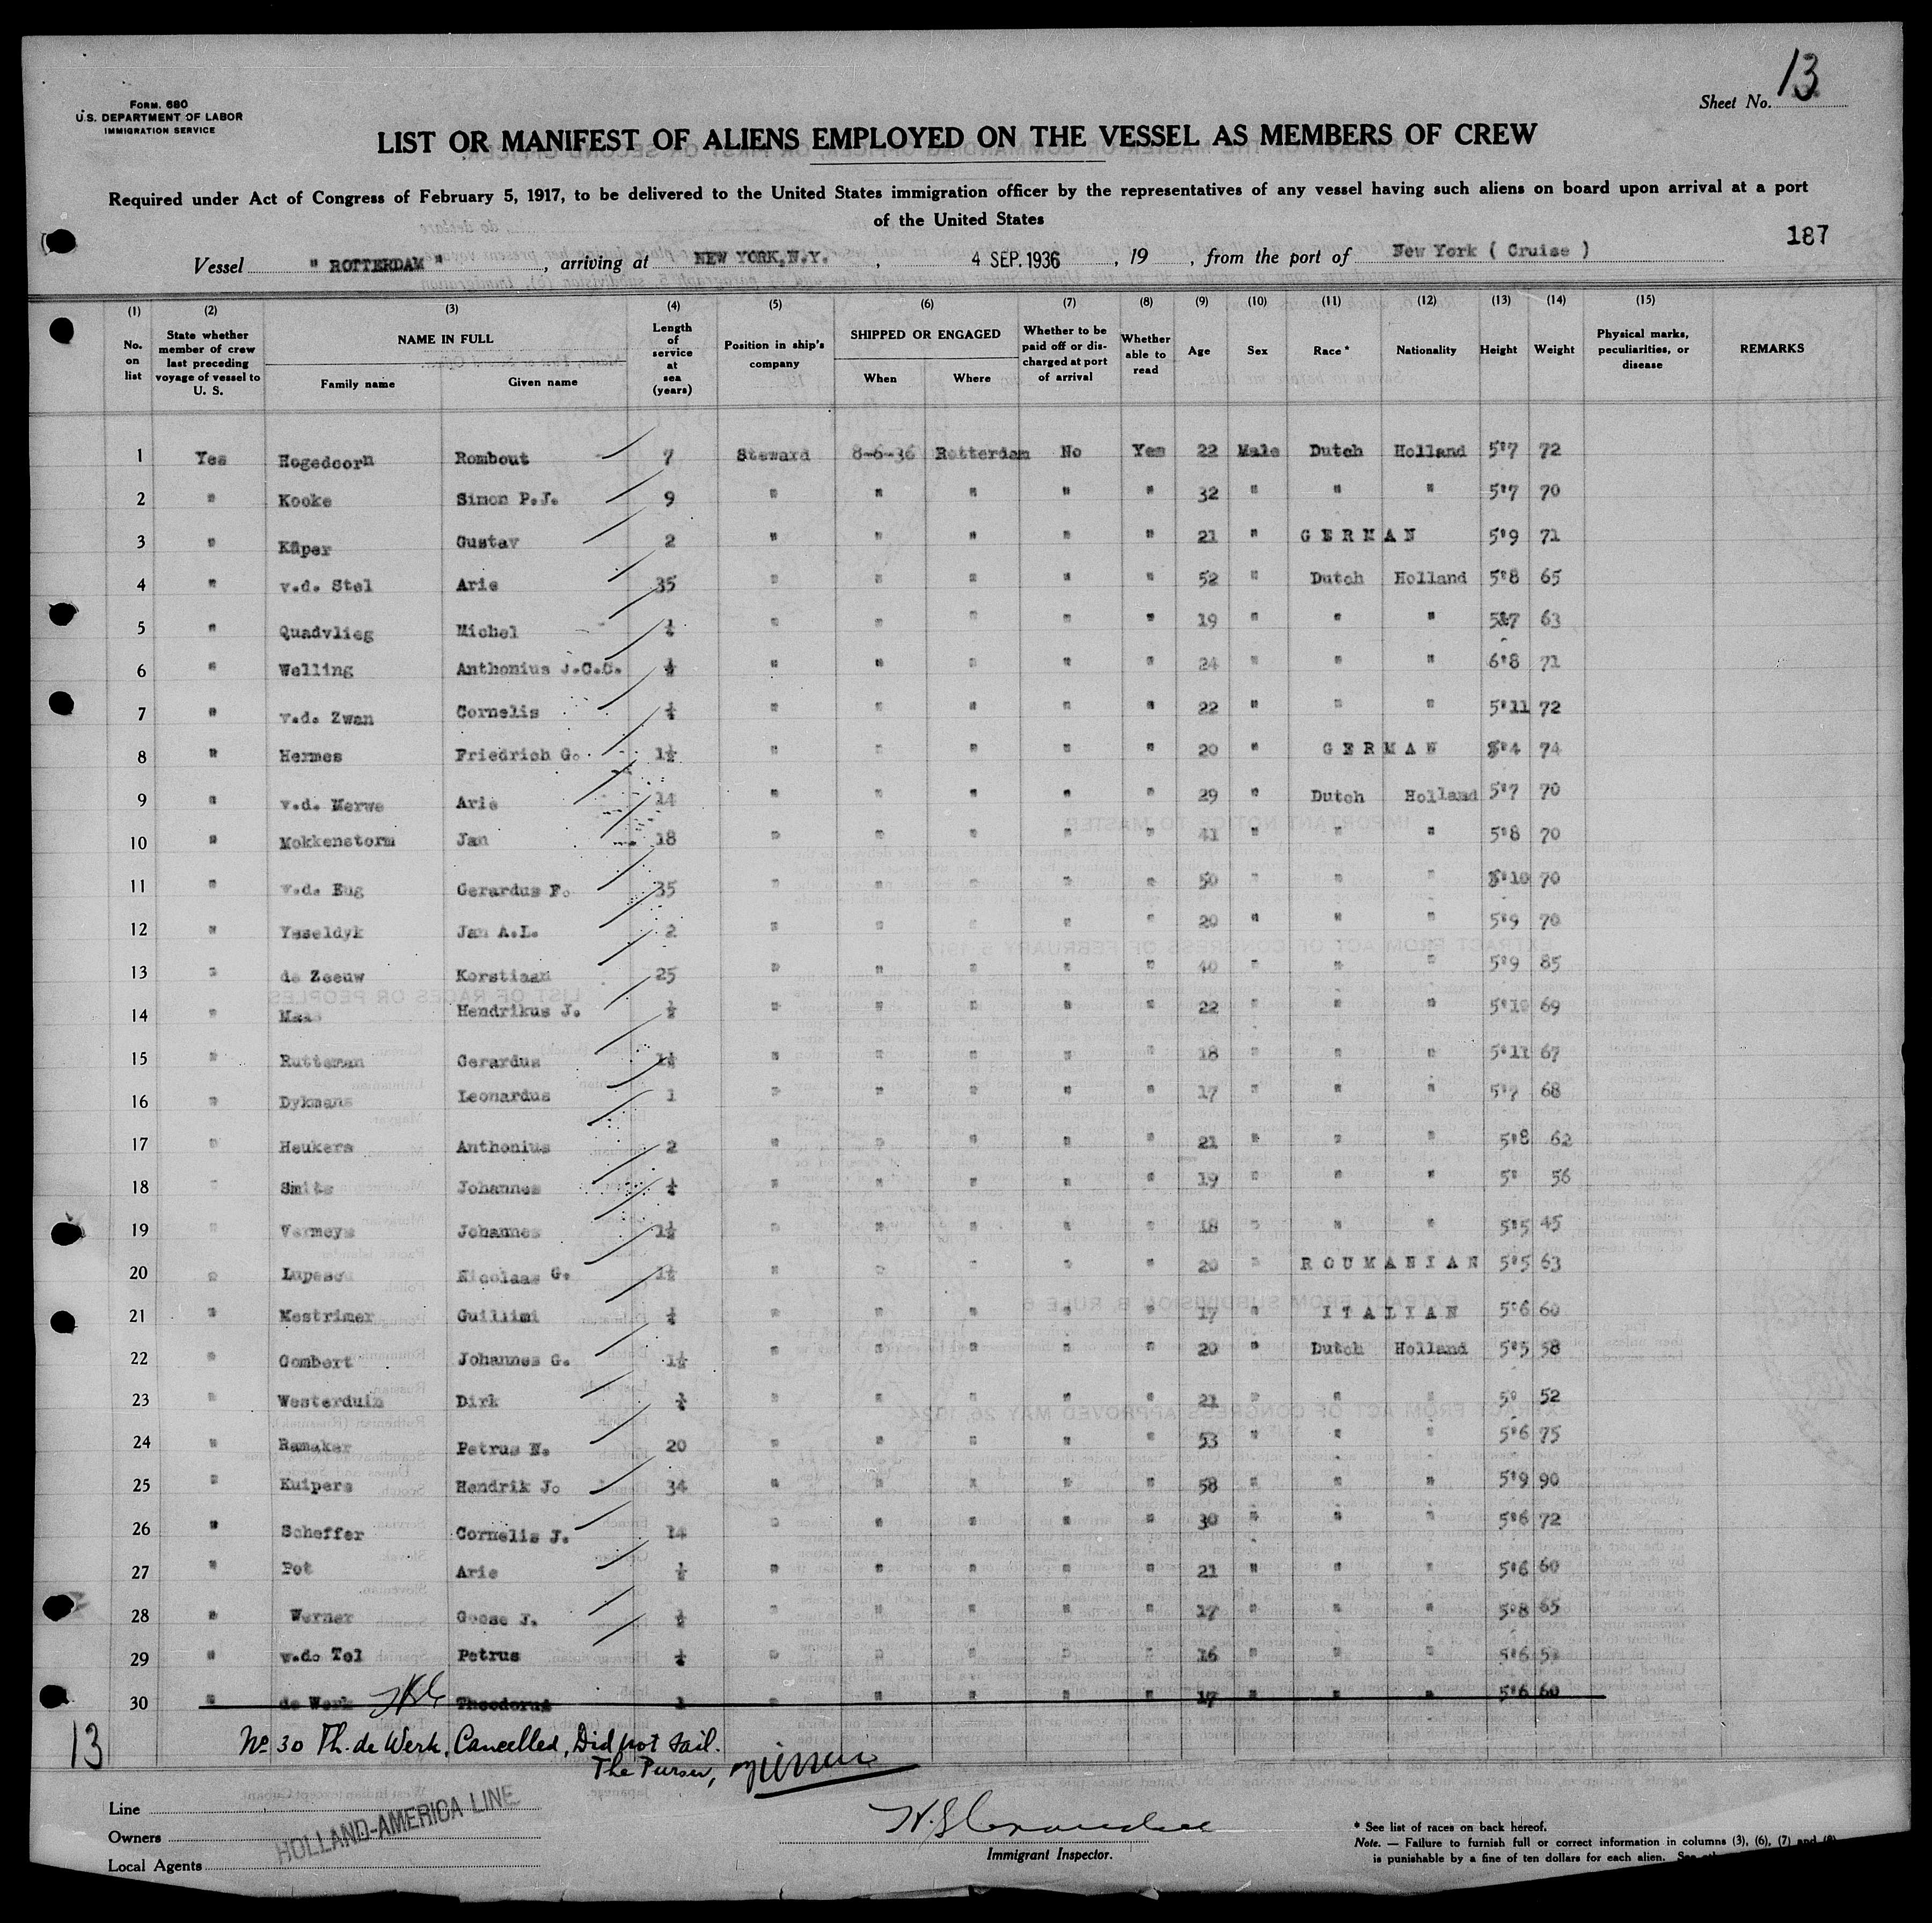 Form. 680
U.S. DEPARTMENT OF LABOR
IMMIGRATION SERVICE
Sheet No. 13
LIST OR MANIFEST OF ALIENS EMPLOYED ON THE VESSEL AS MEMBERS OF CREW
Required under Act of Congress of February 5, 1917, to be delivered to the United States immigration officer by the representatives of any vessel having such aliens on board upon arrival at a port
of the United States
187
Vessel " ROTTERDAM ", arriving at NEW YORK,N.Y., 4 SEP. 1936, 19 , from the port of New York ( Cruise )
(1) (2) (3) (4) (5) (6) (7) (8) (9) (10) (11) (12) (13) (14) (15)
No. on list State whether member of crew last preceding voyage of vessel to U. S. NAME IN FULL Family name Given name Length of service at sea (years) Position in ship's company SHIPPED OR ENGAGED When Where Whether to be paid off or discharged at port of arrival Whether able to read Age Sex Race* Nationality Height Weight Physical marks, peculiarities, or disease REMARKS
1 Yes Hogedoorn Rombout 7 Steward 8-6-36 Rotterdam No Yes 22 Male Dutch Holland 5'7 72
2 " Kooke Simon P.J. 9 " " " " " 32 " " " 5'7 70
3 " Küper Gustav 2 " " " " " 21 " GERMAN 5'9 71
4 " v.d. Stel Arie 35 " " " " " 52 " Dutch Holland 5'8 65
5 " Quadvlieg Michel " " " " " 19 " " " 5'7 63
6 " Welling Anthonius J.C.C. " " " " " 24 " " " 6'8 71
7 " v.d. Zwan Cornelis " " " " " 22 " " " 5'11 72
8 " Hermes Friedrich G. 1½ " " " " " 20 " GERMAN 4 74
9 " v.d. Merwe Arie 14 " " " " " 29 " Dutch Holland 5'7 70
10 " Mokkenstorm Jan 18 " " " " " 41 " " " 5'8 70
11 " v.d. Eug Gerardus F. 35 " " " " " 50 " " " 5'10 70
12 " Ysseldyk Jan A.L. 2 " " " " " 20 " " " 5'9 70
13 " de Zeeuw Korstiaan 25 " " " " " 40 " " " 5'9 85
14 " Maas Hendrikus J. ½ " " " " " 22 " " " 5'10 69
15 " Rutteman Gerardus " " " " " 18 " " " 5'11 67
16 " Dykmans Leonardus 1 " " " " " 17 " " " 5'7 68
17 " Heukers Anthonius 2 " " " " " 21 " " " 5'8 62
18 " Smits Johannes " " " " " 19 " " " 5' 56
19 " Vermeys Johannes 1½ " " " " " 18 " " " 5'5 45
20 " Lupescu Nicolaas G. 1½ " " " " " 20 " ROUMANIAN 5'5 63
21 " Mestriner Guillimi " " " " " 17 " ITALIAN 5'6 60
22 " Gombert Johannes G. 1½ " " " " " 20 " Dutch Holland 5'5 58
23 " Westerduin Dirk " " " " " 21 " " " 5' 52
24 " Ramaker Petrus N. 20 " " " " " 53 " " " 5'6 75
25 " Kuipers Hendrik J. 34 " " " " " 58 " " " 5'9 90
26 " Scheffer Cornelis J. 14 " " " " " 30 " " " 5'6 72
27 " Pot Arie ½ " " " " " 21 " " " 5'6 60
28 " Werner Goose J. ½ " " " " " 17 " " " 5'8 65
29 " v.d. Tol Petrus " " " " " 16 " " " 5'6
30 " de Werk Theodorus 1 " " " " " 17 " " " 5'6 60
13
No 30 Th. de Werk, Cancelled, Did not sail.
The Purser,
Line
Owners
Local Agents
HOLLAND-AMERICA LINE
Immigrant Inspector.
* See list of races on back hereof.
Note. — Failure to furnish full or correct information in columns (3), (6), (7) and (8)
is punishable by a fine of ten dollars for each alien.